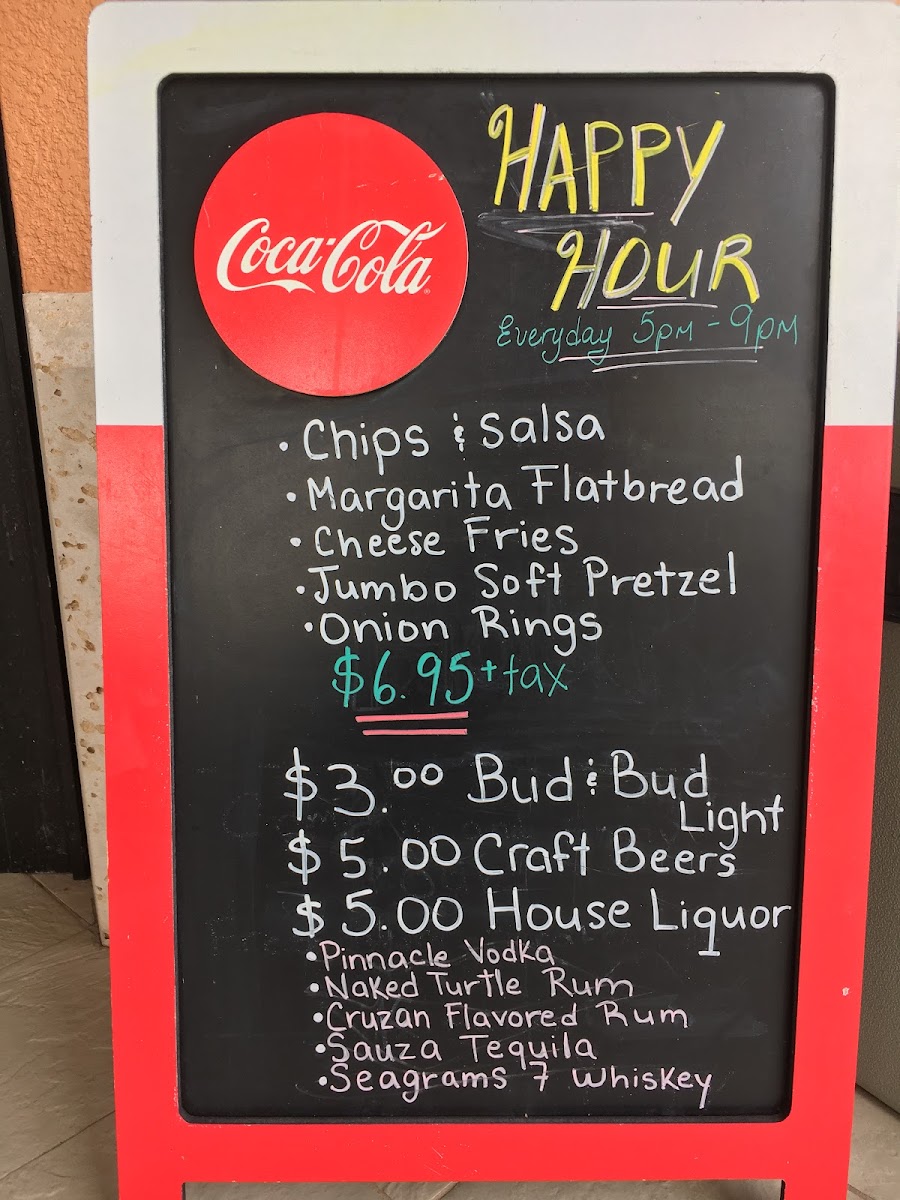 Coca-Cola
HAPPY
HOUR
Everyday 5pm - 9pm
• Chips & Salsa
• Margarita Flatbread
• Cheese Fries
• Jumbo Soft Pretzel
• Onion Rings
$6.95 + tax
$3.00 Bud & Bud
Light
$5.00 Craft Beers
$5.00 House Liquor
• Pinnacle Vodka
• Naked Turtle Rum
• Cruzan Flavored Rum
• Sauza Tequila
• Seagrams 7 Whiskey